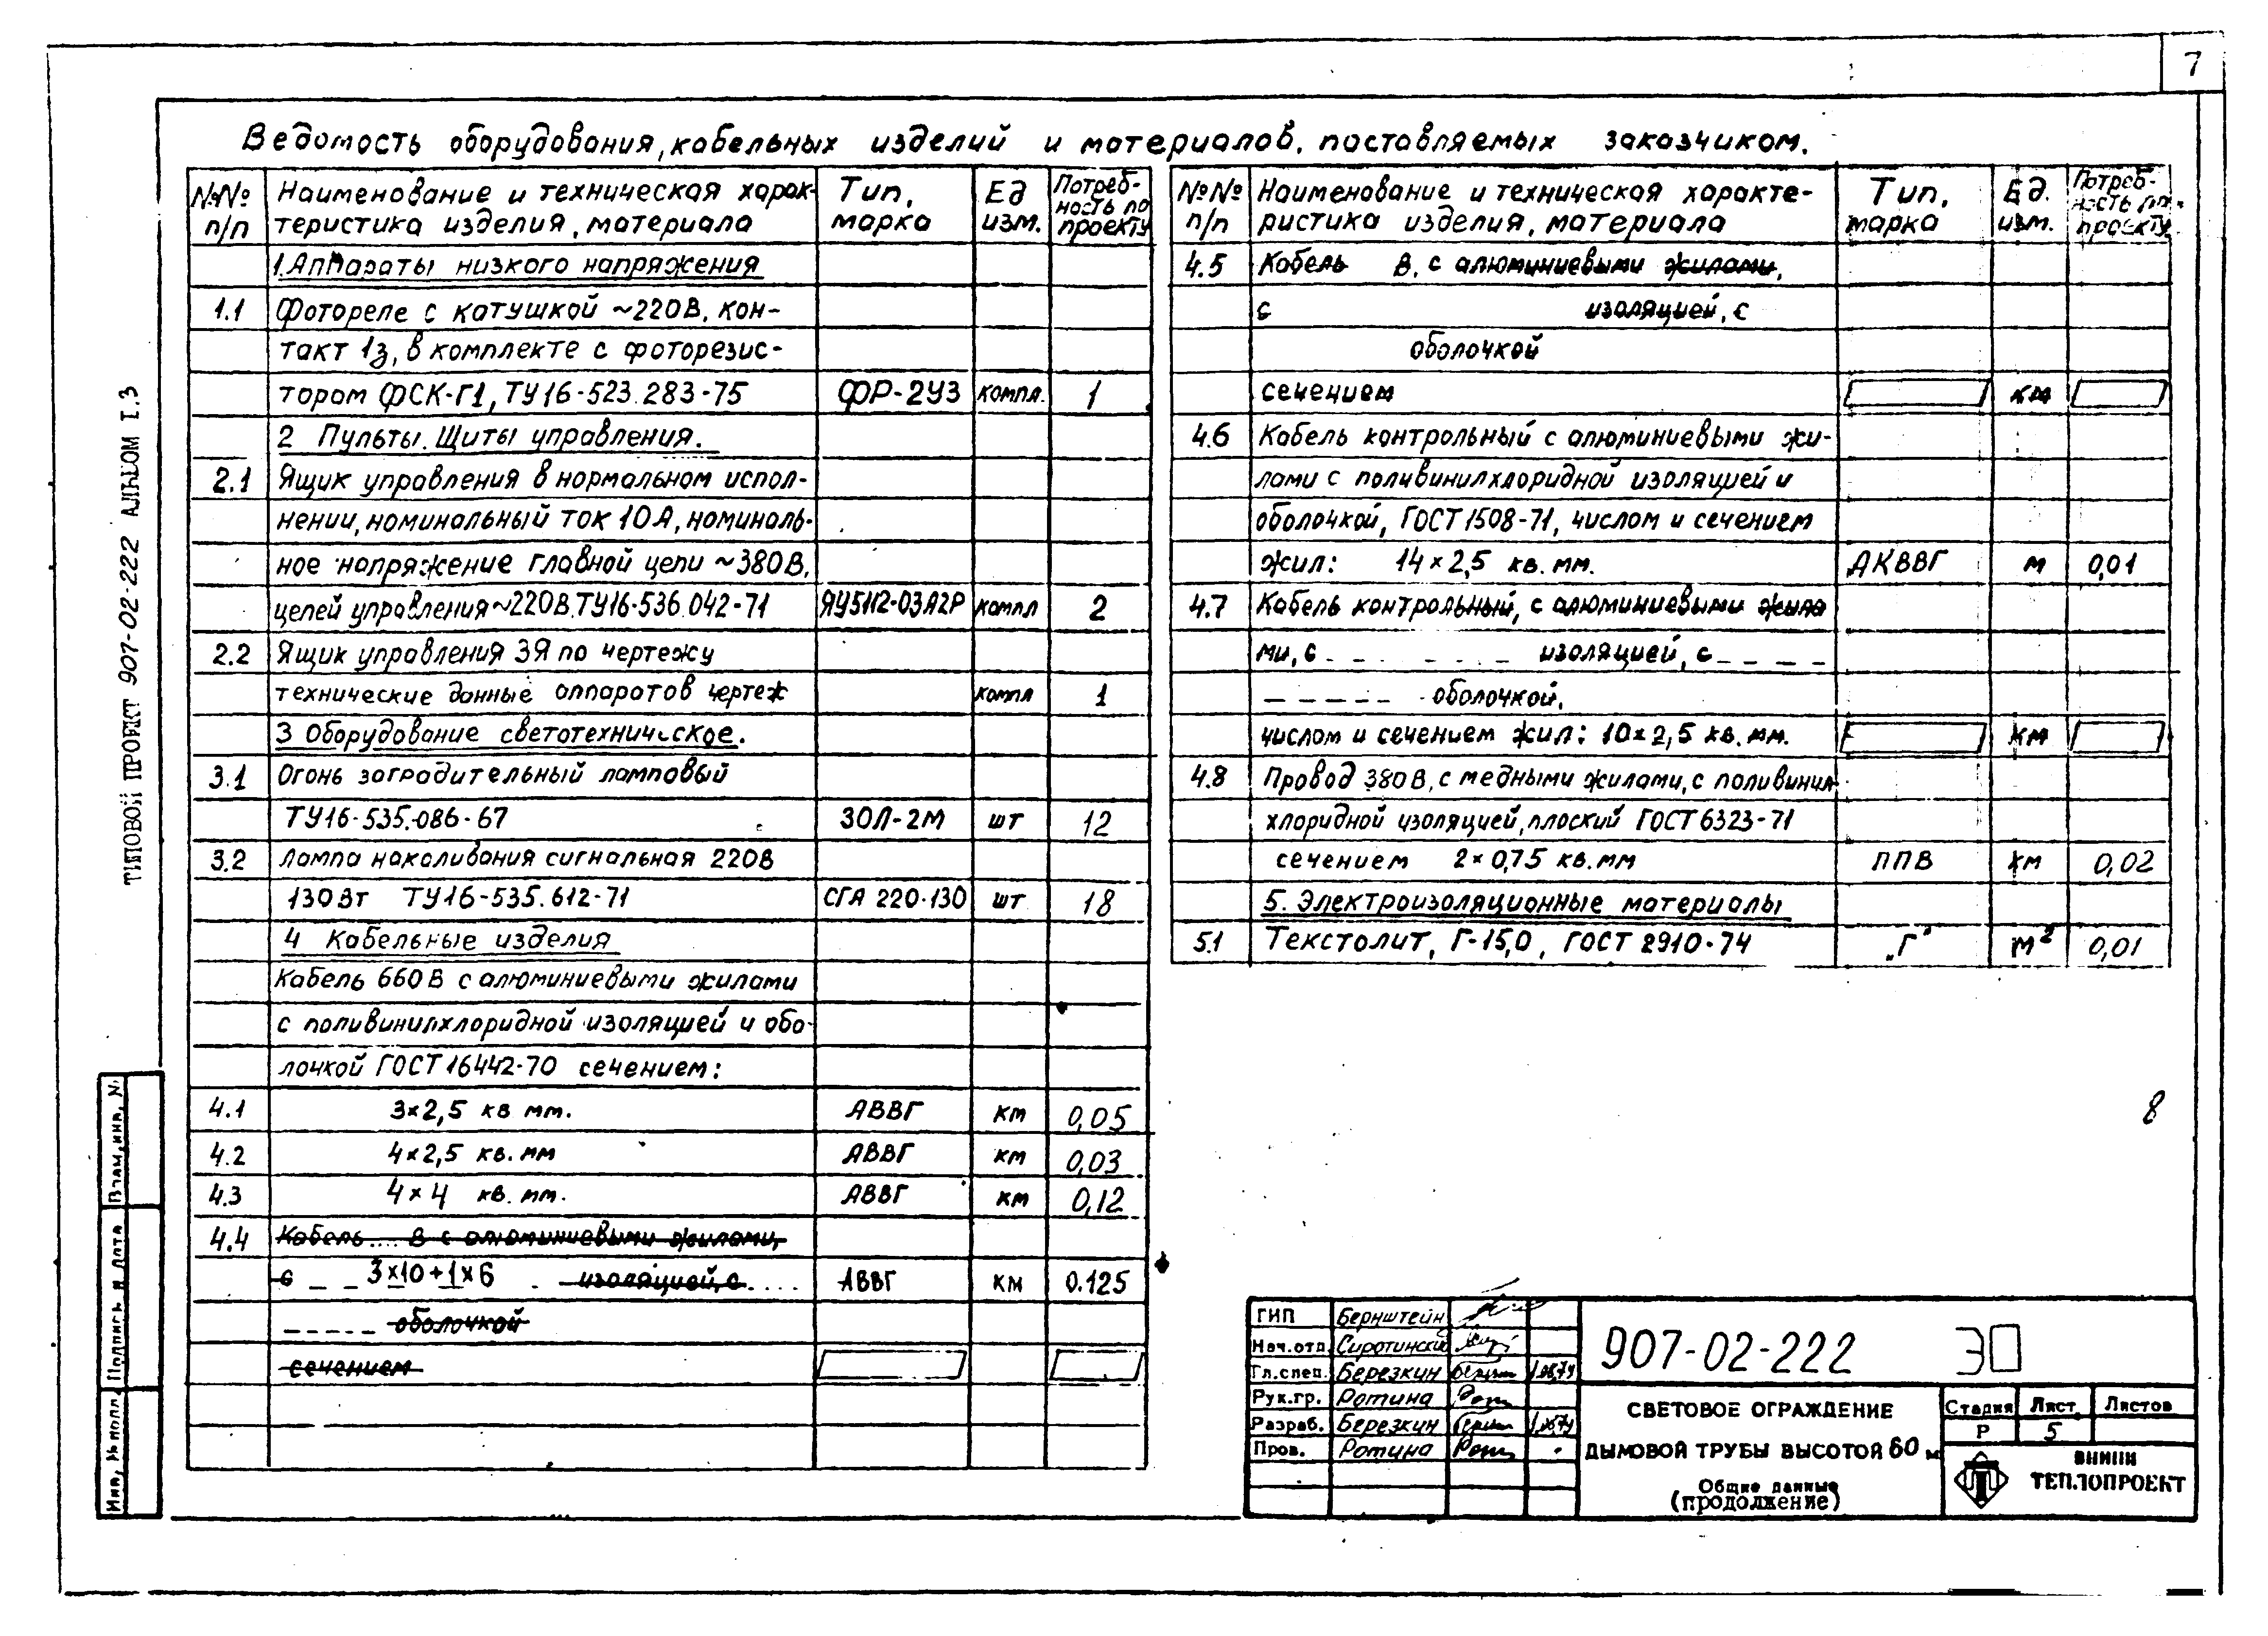 7
Ведомость оборудования, кабельных изделий и материалов, поставляемых заказчиком.
№№ п/п
Наименование и техническая харак-
теристика изделия, материала
Тип, марка
Ед изм.
Потреб-
ность по
проекту
1. Аппараты низкого напряжения
1.1 Фотореле с катушкой ~220В, кон-
такт 1з, в комплекте с фоторезис-
тором ФСК-Г1, ТУ16-523.283-75 ФР-2У3 компл. 1
2 Пульты. Щиты управления.
2.1 Ящик управления в нормальном испол-
нении, номинальный ток 10А, номиналь-
ное напряжение главной цепи ~380В,
цепей управления ~220В. ТУ16-536.042-71 ЯУ5112-03А2Р компл 2
2.2 Ящик управления ЗЯ по чертежу
технические данные аппаратов чертеж компл 1
3 Оборудование светотехническое.
3.1 Огонь заградительный ламповый
ТУ16-535.-086-67 ЗОЛ-2М шт 12
3.2 Лампа накаливания сигнальная 220В
130Вт ТУ16-535.612-71 СГА 220-130 шт 18
4 Кабельные изделия
Кабель 660В с алюминиевыми жилами
с поливинилхлоридной изоляцией и обо-
лочкой ГОСТ 16442-70 сечением:
4.1 3×2,5 кв мм. АВВГ км 0,05
4.2 4×2,5 кв. мм АВВГ км 0,03
4.3 4×4 кв. мм. АВВГ км 0,12
4.4 Кабель.... В с алюминиевыми жилами,
с _ _ 3×10+1×6 изоляцией, с.... АВВГ км 0.125
_ _ _ _ _ оболочкой
сечением
№№ п/п
Наименование и техническая характе-
ристика изделия, материала
Тип, марка
Ед. изм.
Потреб-
ность по
проекту
4.5 Кабель В, с алюминиевыми жилами,
с изоляцией, с
оболочкой
сечением км
4.6 Кабель контрольный с алюминиевыми жи-
лами с поливинилхлоридной изоляцией и
оболочкой, ГОСТ 1508-71, числом и сечением
жил: 14×2,5 кв. мм. АКВВГ м 0,01
4.7 Кабель контрольный, с алюминиевыми жила
ми, с _ _ _ _ _ изоляцией, с _ _ _ _
_ _ _ _ _ оболочкой,
числом и сечением жил: 10×2,5 кв. мм. км
4.8 Провод 380В, с медными жилами, с поливинил
хлоридной изоляцией, плоский ГОСТ 6323-71
сечением 2×0,75 кв. мм ППВ км 0,02
5. Электроизоляционные материалы
5.1 Текстолит, Г-15,0, ГОСТ 2910-74 „Г" м² 0,01
8
ТИПОВОЙ ПРОЕКТ 907-02-222 АЛЬБОМ I.3
Взам. инв. №
Подпись и дата
Инв. № подл.
ГИП Бернштейн
Нач.отд. Сиротинский
Гл.спец. Березкин
Рук.гр. Ротина
Разраб. Березкин
Пров. Ротина
907-02-222 ЭО
СВЕТОВОЕ ОГРАЖДЕНИЕ
ДЫМОВОЙ ТРУБЫ ВЫСОТОЙ 60 м
Общие данные
(продолжение)
Стадия Лист Листов
Р 5
ВНИПИ
ТЕПЛОПРОЕКТ